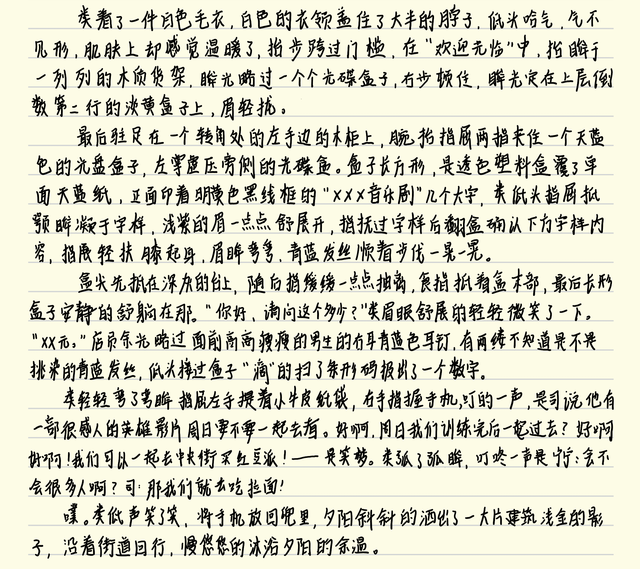 类着了一件白色毛衣，白色的衣领盖住了大半的脖子，低头哈气，气不
见形，肌肤上却感觉温暖了，抬步跨过门槛，在“欢迎光临”中，抬眸于
一列列的木质货架，眸光略过一个个光碟盒子，右步顿住，眸光定在上层倒
数第二行的淡黄盒子上，眉轻扰。
最后驻足在一个转角处的左手边的木柜上，腕抬指屈两指夹住一个天蓝
色的光盘盒子，左掌虚压旁侧的光碟盒。盒子长方形，是透色塑料盒覆了平
面天蓝纸，正面印着明黄色黑线框的“xxx音乐剧”几个大字，类低头指屈抵
颚眸凝于字样，浅紫的眉一点点舒展开，指抚过字样后翻盒确认下方字样内
容，指展轻扶膝起身，眉眸弯弯，青蓝发丝顺着步伐一晃一晃。
盒尖先抵在深灰的台上，随后指缓缓一点点抽离，食指抵着盒末部，最后长形
盒子安静的舒躺在那。“你好，请问这个多少？”类眉眼舒展的轻轻微笑了一下。
“xx元。”店员余光略过面前高高瘦瘦的男生的右耳青蓝色耳钉，有两缕不知道是不是
挑染的青蓝发丝，低头接过盒子“滴”的扫了条形码报出了一个数字。
类轻轻弯了弯眸指屈左手提着小牛皮纸袋，右手指握手机，叮的一声，是司说他有
一部很感人的英雄影片周日要不要一起去看。好啊，周日我们训练完后一起过去？好啊
好啊！我们可以一起去中央街买红豆派！——是笑梦。类弧了弧眸，叮咚一声是宁：会不
会很多人啊？司：那我们就去吃拉面！
噗。类低声笑了笑，将手机放回兜里，夕阳斜斜的洒出了一大片建筑浅金的影
子，沿着街道回行，慢悠悠的沐浴夕阳的余温。